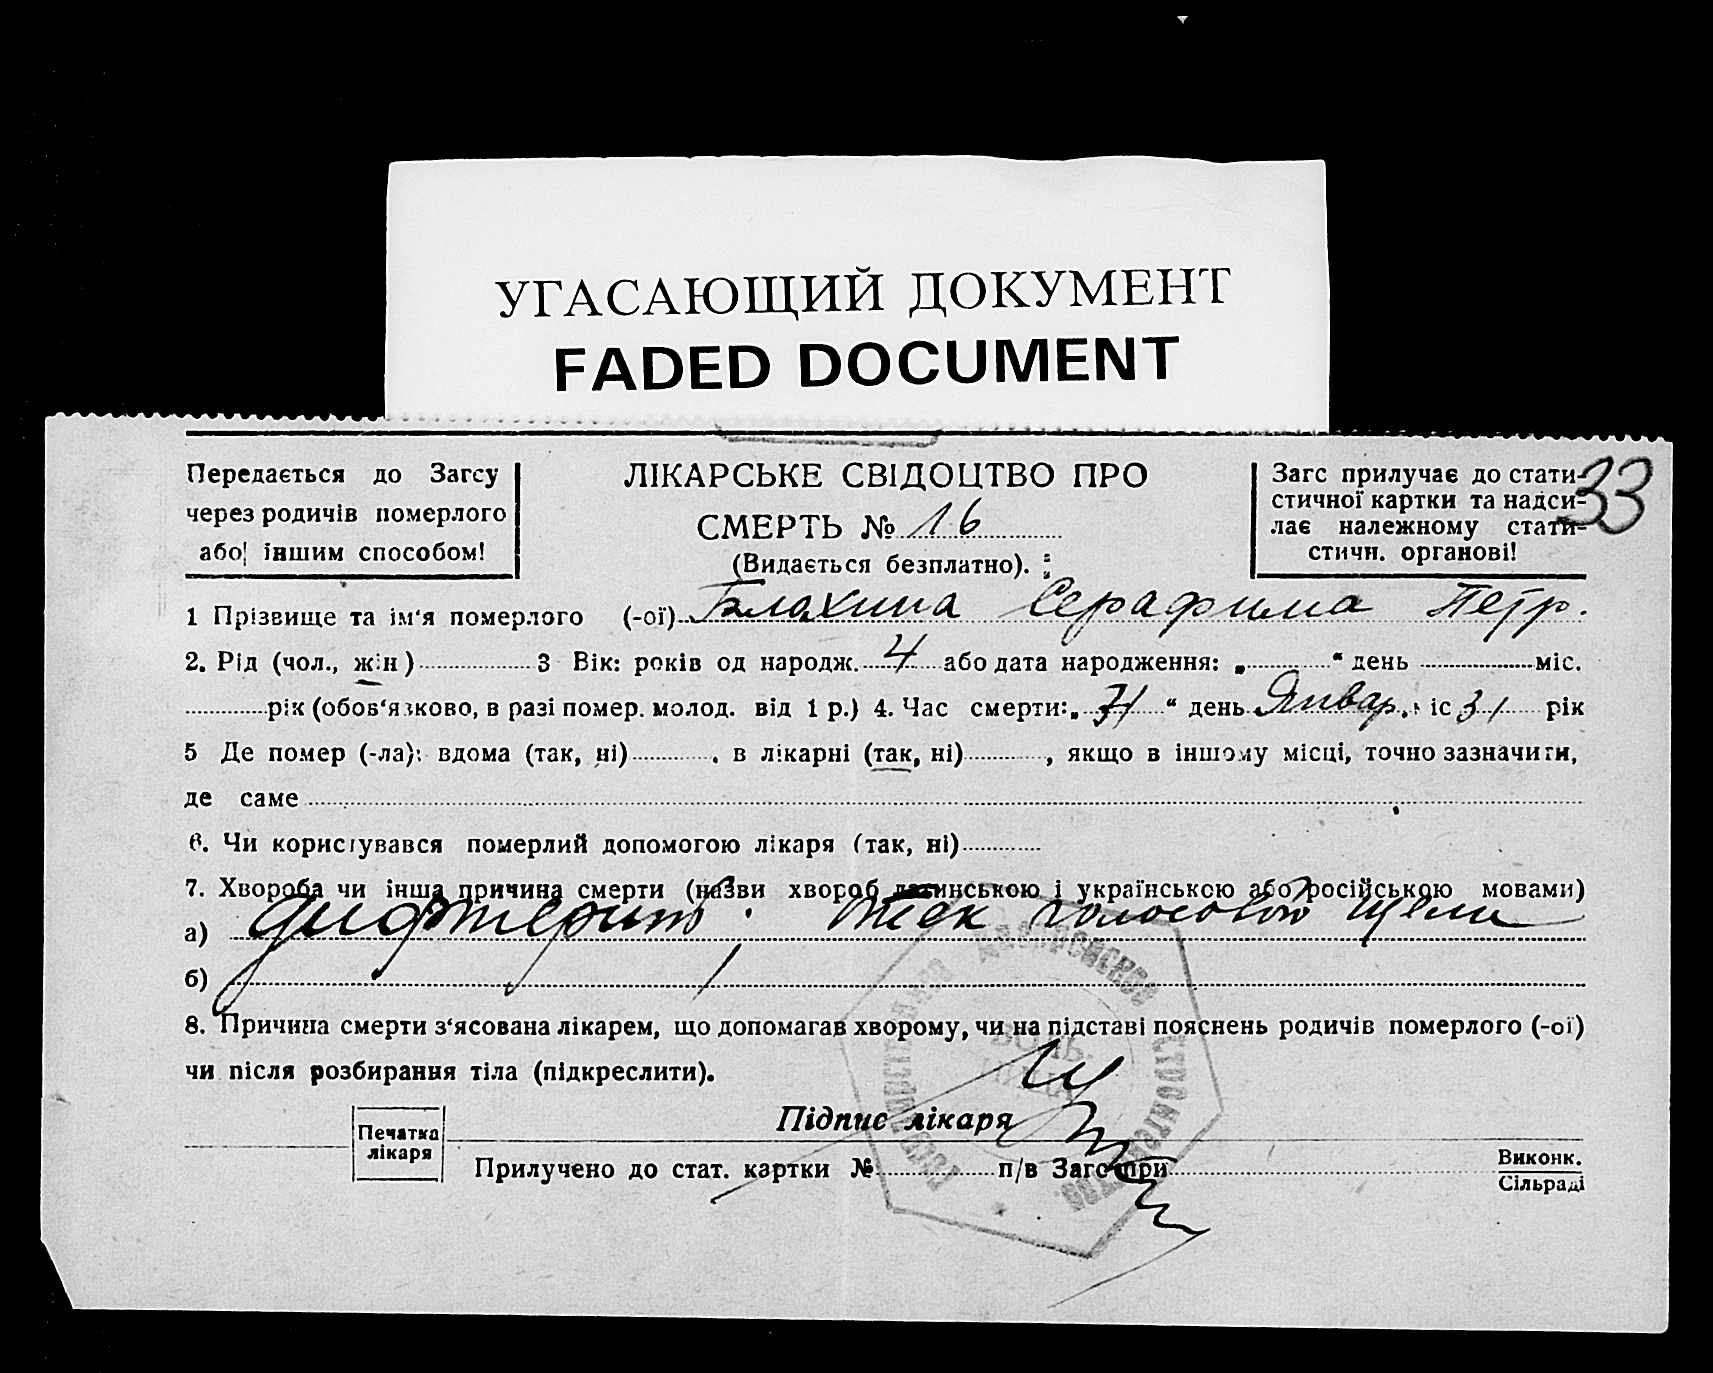 УГАСАЮЩИЙ ДОКУМЕНТ
FADED DOCUMENT
Передається до Загсу
через родичів померлого
або іншим способом!
ЛІКАРСЬКЕ СВІДОЦТВО ПРО
СМЕРТЬ № 16
(Видається безплатно).
Загс прилучає до стати-
стичної картки та надси-
лає належному стати-
стичн. органові!
33
1 Прізвище та ім'я померлого (-ої) Блахина Серафима Петр.
2. Рід (чол., жін) 3 Вік: років од народж. 4 або дата народження: „ “ день міс.
рік (обов'язково, в разі помер. молод. від 1 р.) 4. Час смерти: „ “ день Январ. іс 31 рік
5 Де помер (-ла): вдома (так, ні) , в лікарні (так, ні) , якщо в іншому місці, точно зазначити,
де саме
6. Чи користувався померлий допомогою лікаря (так, ні)
7. Хвороба чи інша причина смерти (назви хвороб латинською і українською або російською мовами)
а) дифтерит. Отек голосовой щели
б)
8. Причина смерти з'ясована лікарем, що допомагав хворому, чи на підставі пояснень родичів померлого (-ої)
чи після розбирання тіла (підкреслити).
Підпис лікаря
Печатка
лікаря
Прилучено до стат. картки № п/в Загс при
Виконк.
Сільраді